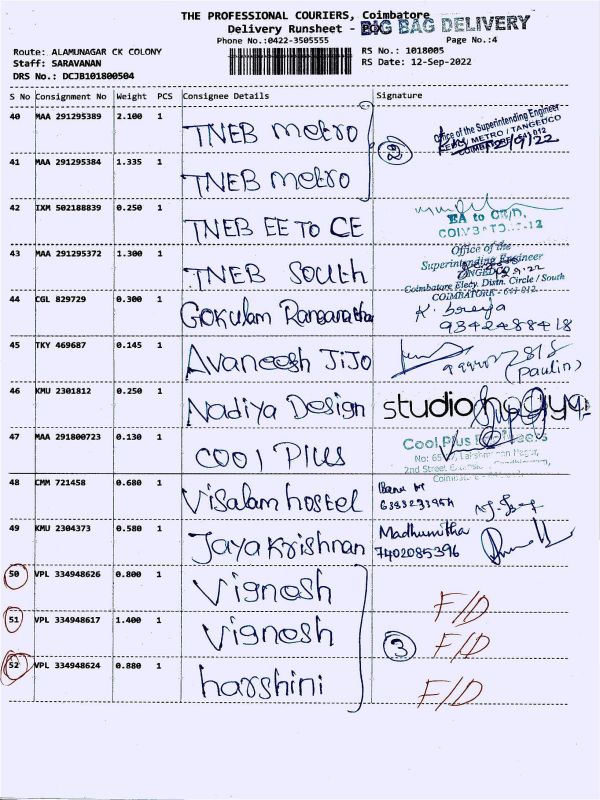 THE PROFESSIONAL COURIERS, Coimbatore
Delivery Runsheet - POD
BIG BAG DELIVERY
Phone No.:0422-3505555
Page No.:4
Route: ALAMUNAGAR CK COLONY
RS No.: 1018005
Staff: SARAVANAN
RS Date: 12-Sep-2022
DRS No.: DCJB101800504
S No Consignment No Weight PCS Consignee Details Signature
40 MAA 291295389 2.100 1 TNEB metro
Office of the Superintending Engineer
METRO / TANGEDCO
COIMBATORE - 641 012
2
41 MAA 291295384 1.335 1 TNEB metro
42 IXM 502188839 0.250 1 TNEB EE TO CE
EA to CE/D,
43 MAA 291295372 1.300 1 TNEB South
Office of the
Superintending Engineer
TANGEDCO
Coimbatore Elecy. Distn. Circle / South
COIMBATORE - 641 012.
44 CGL 829729 0.300 1 Gokulam Ranganathan
9342488418
45 TKY 469687 0.145 1 Avaneesh JiJo
(Paulin)
46 KMU 2301812 0.250 1 Nadiya Design
studio
47 MAA 291800723 0.130 1 COOl PlUS
Cool Plus
2nd Street
48 CMM 721458 0.680 1 Visalam hostel
Banu M
49 KMU 2304373 0.580 1 Jaya Krishnan
Madhumitha
7402085396
50 VPL 334948626 0.800 1 Vignesh F/D
51 VPL 334948617 1.400 1 Vignesh F/D
3
52 VPL 334948624 0.880 1 harshini F/D